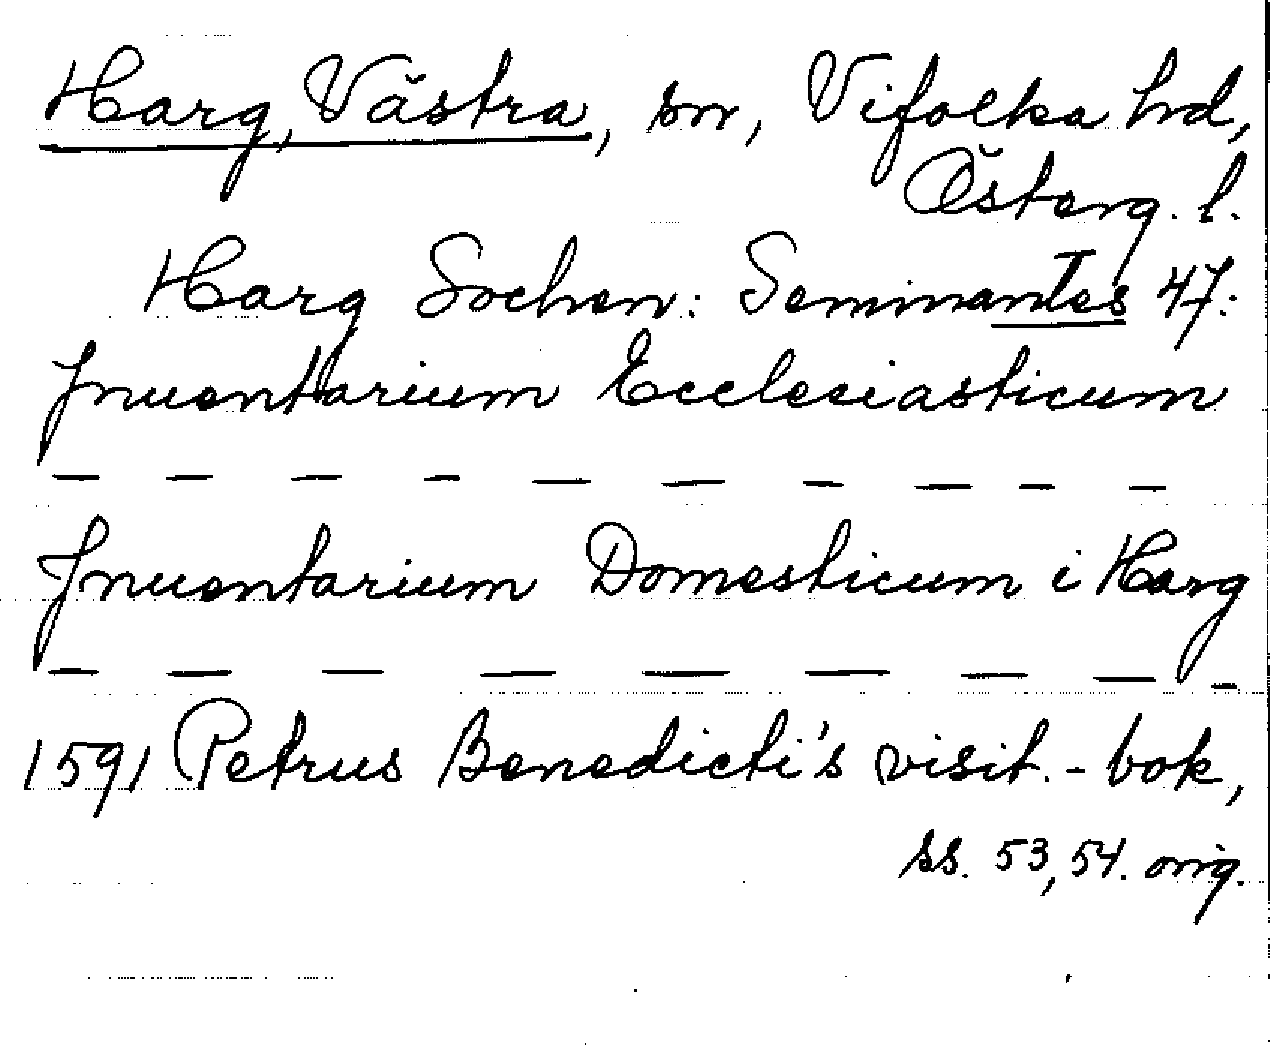 Harg, Västra, sn, Vifolka hrd,
Österg. l.
Harg Sochen: Seminantes 47:
Inuentarium Ecclesiasticum
— — — — — — — — — —
Inuentarium Domesticum i Harg
— — — — — — — — —
1591 Petrus Benedicti's visit.-bok,
ss. 53, 54. orig.